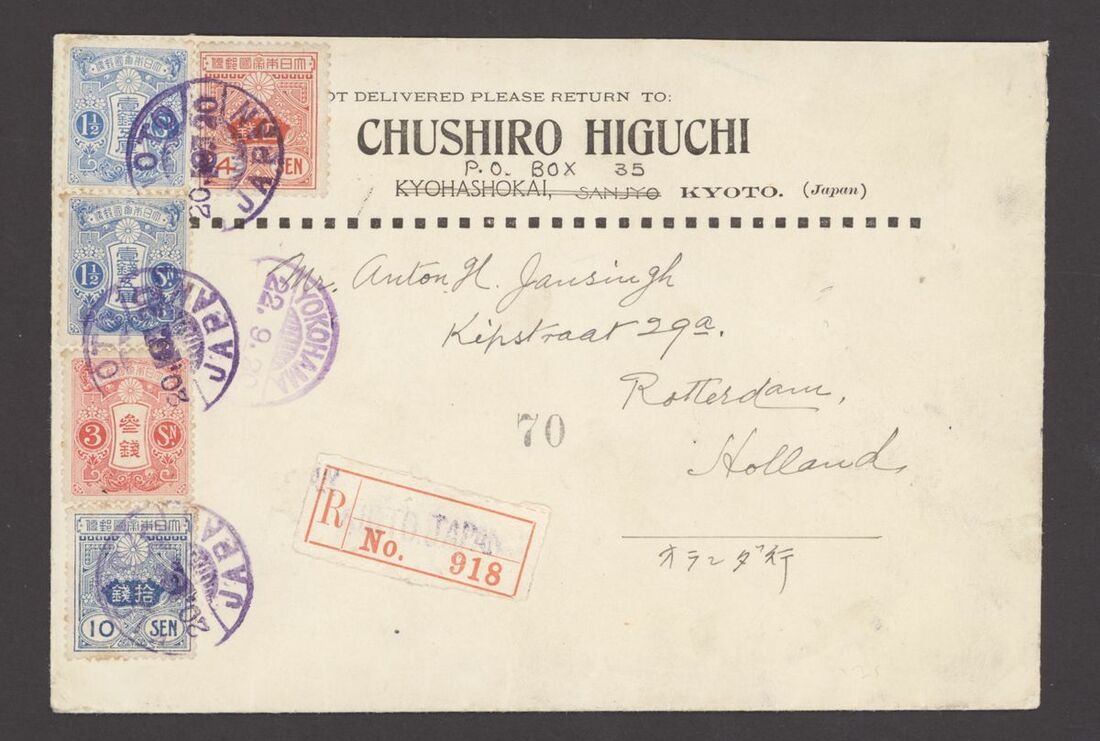 OT DELIVERED PLEASE RETURN TO:
CHUSHIRO HIGUCHI
P.O. BOX 35
KYOHASHOKAI, SANJYO KYOTO. (Japan)
Mr. Anton H. Jansingh
Kipstraat 29a.
Rotterdam,
Holland
オランダ行
70
R
KYOTO. JAPAN
No. 918
YOKOHAMA
22.9.20
大日本帝國郵便
1½
壹錢五厘
大日本帝國郵便
4 SEN
OTO
JAPAN
大日本帝國郵便
1½ SN
壹錢五厘
JAPAN
大日本帝國郵便
3 SN
參錢
大日本帝國郵便
拾錢
10 SEN
JAPA